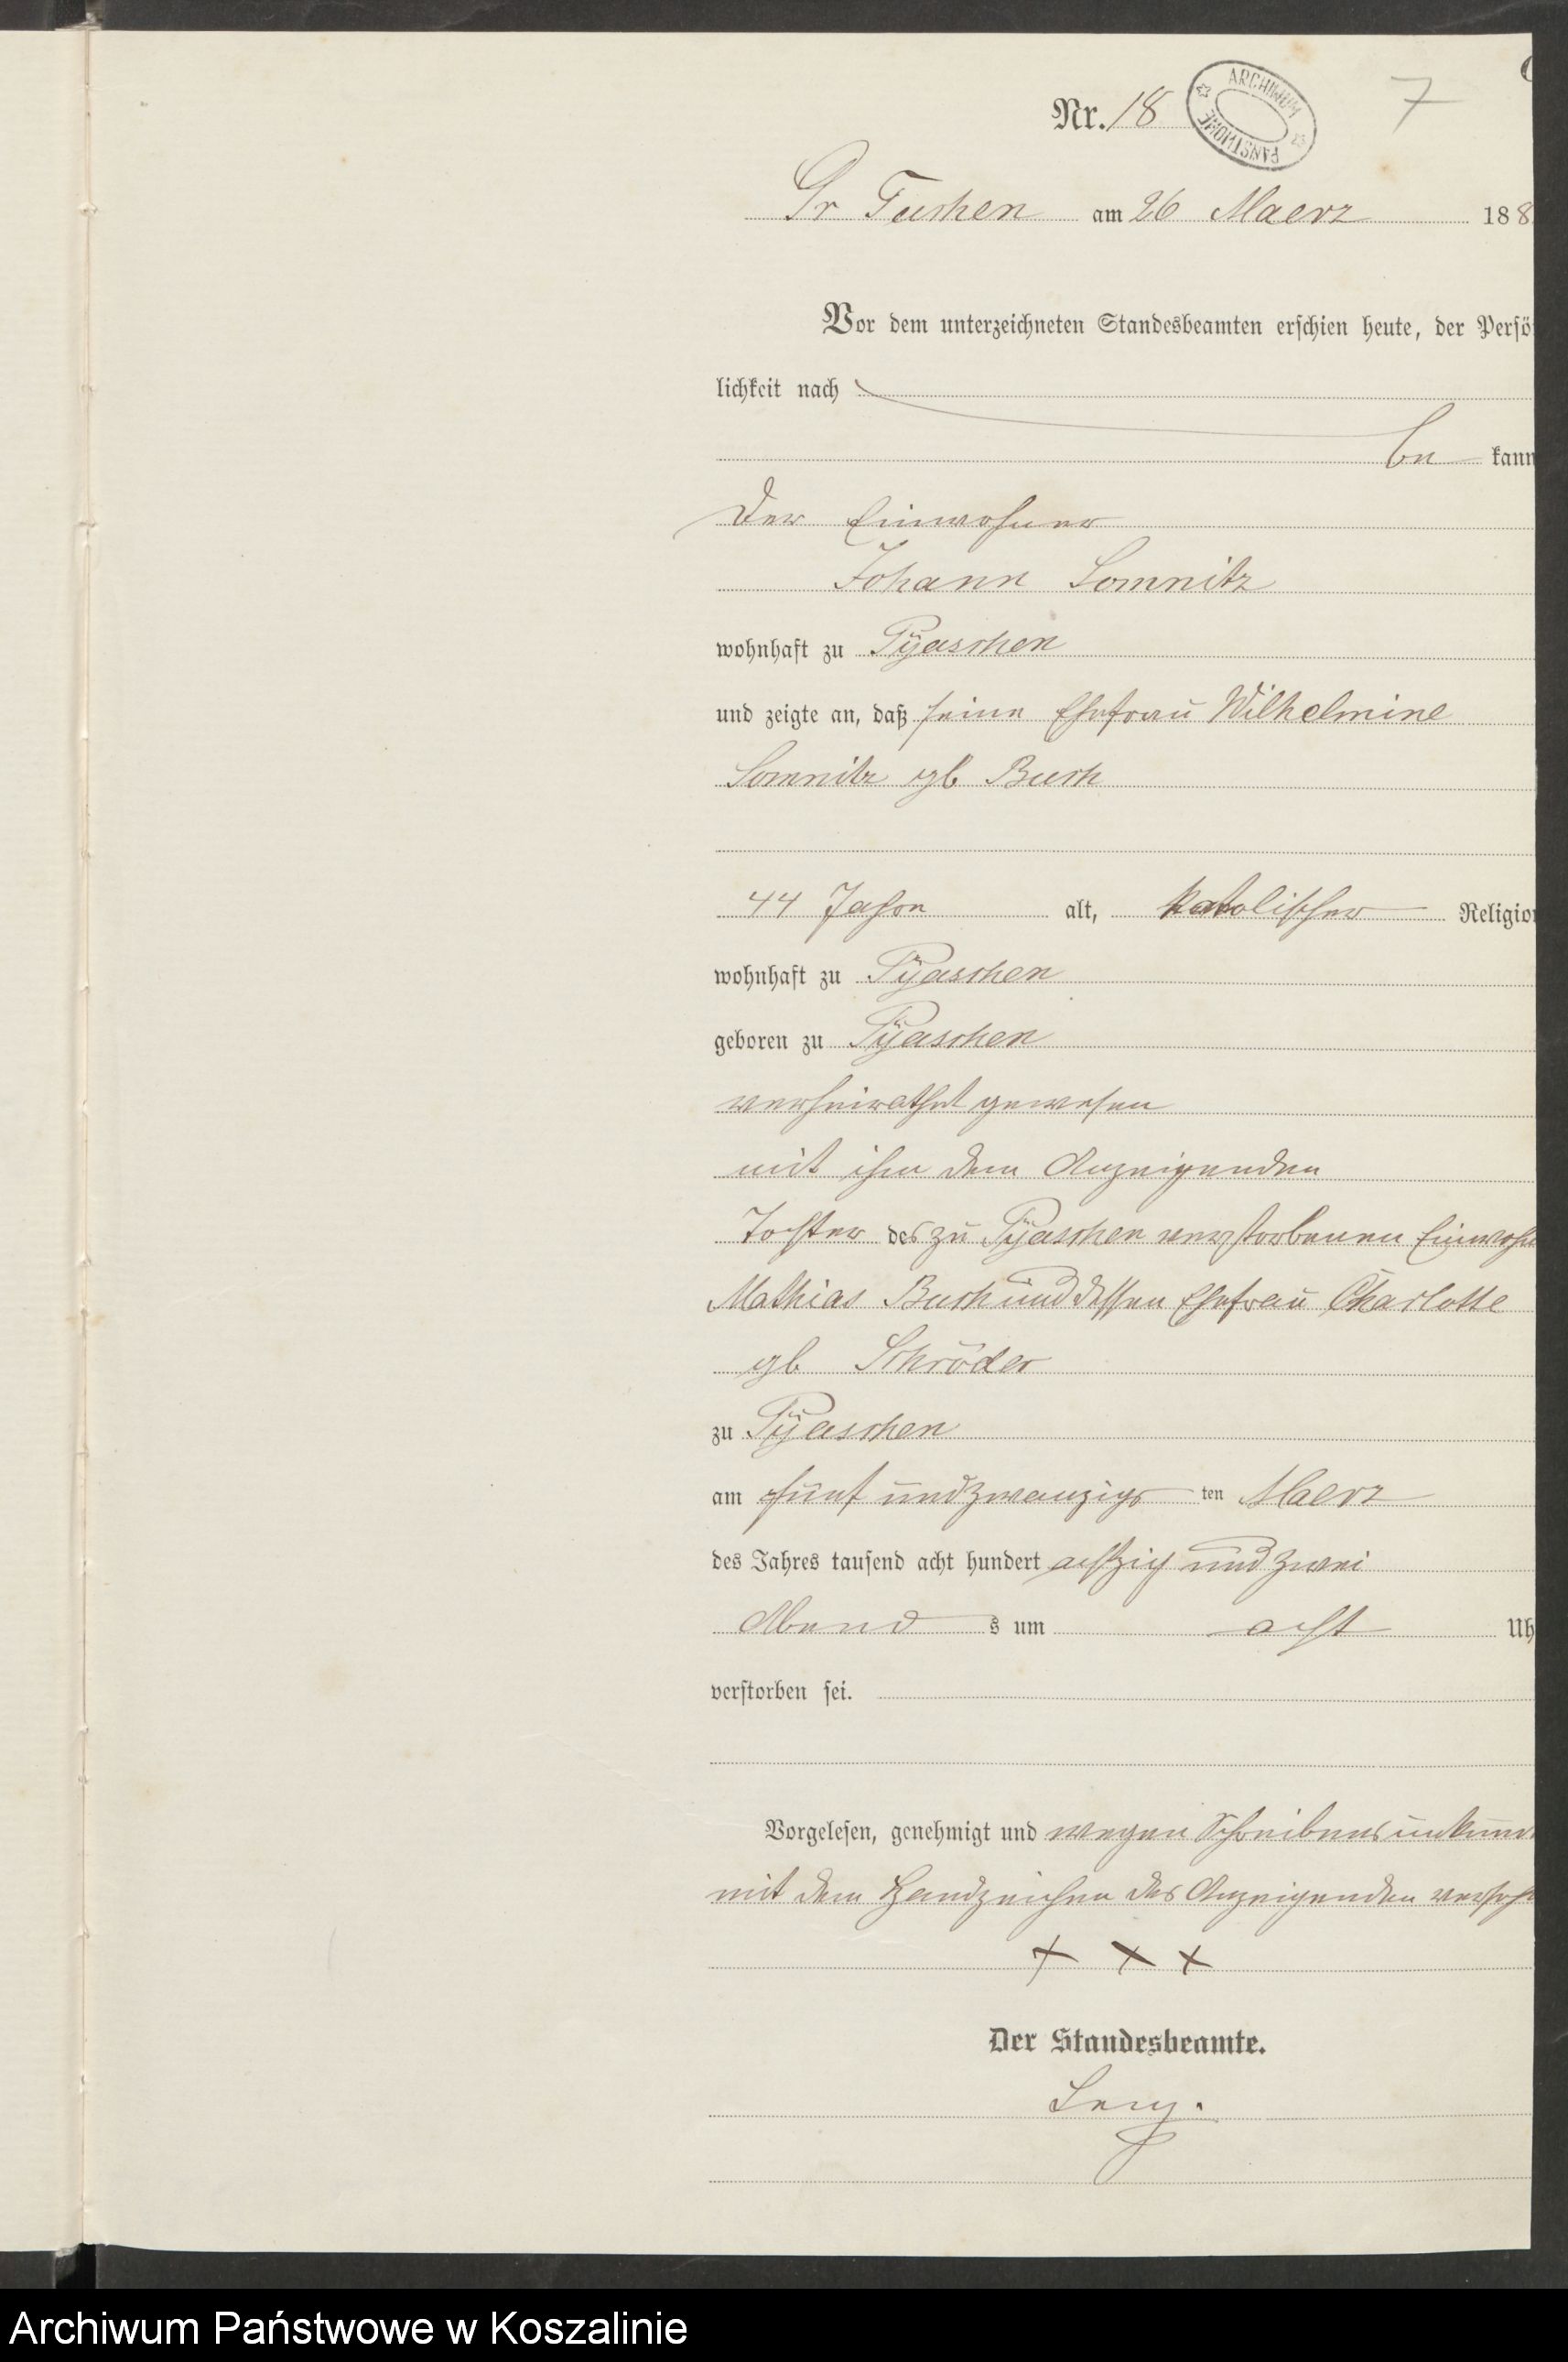 Nr. 18
ARCHIWUM PAŃSTWOWE
7
Gr Tuchen am 26 Maerz 188
Vor dem unterzeichneten Standesbeamten erschien heute, der Persö
lichkeit nach
be kann
der Einwohner
Johann Somnitz
wohnhaft zu Pyaschen
und zeigte an, daß seine Ehefrau Wilhelmine
Somnitz gb Buch
44 Jahre alt, katolischer Religio
wohnhaft zu Pyaschen
geboren zu Pyaschen
verheirathet gewesen
mit ihm dem Anzeigenden
Tochter des zu Pyaschen verstorbenen Einwohn
Mathias Buch und dessen Ehefrau Charlotte
gb Schröder
zu Pyaschen
am fünf und zwanzigs ten Maerz
des Jahres tausend acht hundert achtzig und zwei
Abend s um acht Uh
verstorben sei.
Vorgelesen, genehmigt und wegen Schreibens unkund
mit dem Handzeichen des Anzeigenden verseh
+ + +
Der Standesbeamte.
Archiwum Państwowe w Koszalinie